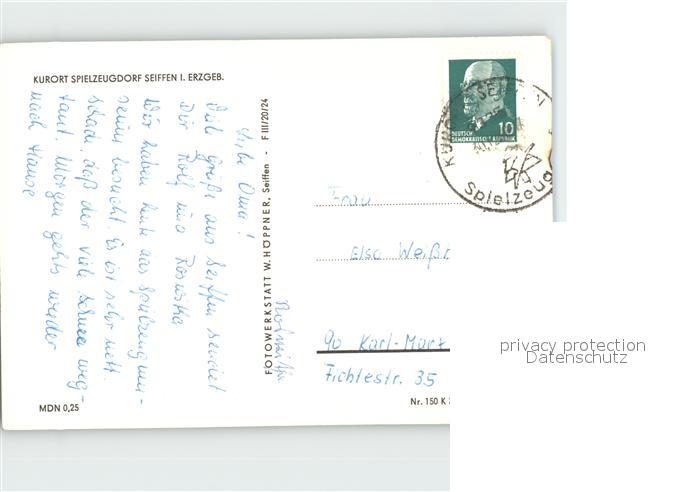 KURORT SPIELZEUGDORF SEIFFEN I. ERZGEB.
Liebe Oma!
Viele Grüße aus Seiffen sendet
Dir Rolf und Roswitha
Wir haben heute das Spielzeugmu-
seum besucht. Es ist sehr nett.
Schade, daß der viele Schnee weg-
taut. Morgen gehts wieder
nach Hause
Roswitha
FOTOWERKSTATT W. HÖPPNER, Seiffen - F III/20/24
MDN 0,25
10
DEUTSCHE
DEMOKRATISCHE REPUBLIK
KURORT SEIFFEN
Spielzeug
Frau
Elsa Weißr
90 Karl-Marx
Fichtestr. 35
Nr. 150 K
privacy protection
Datenschutz